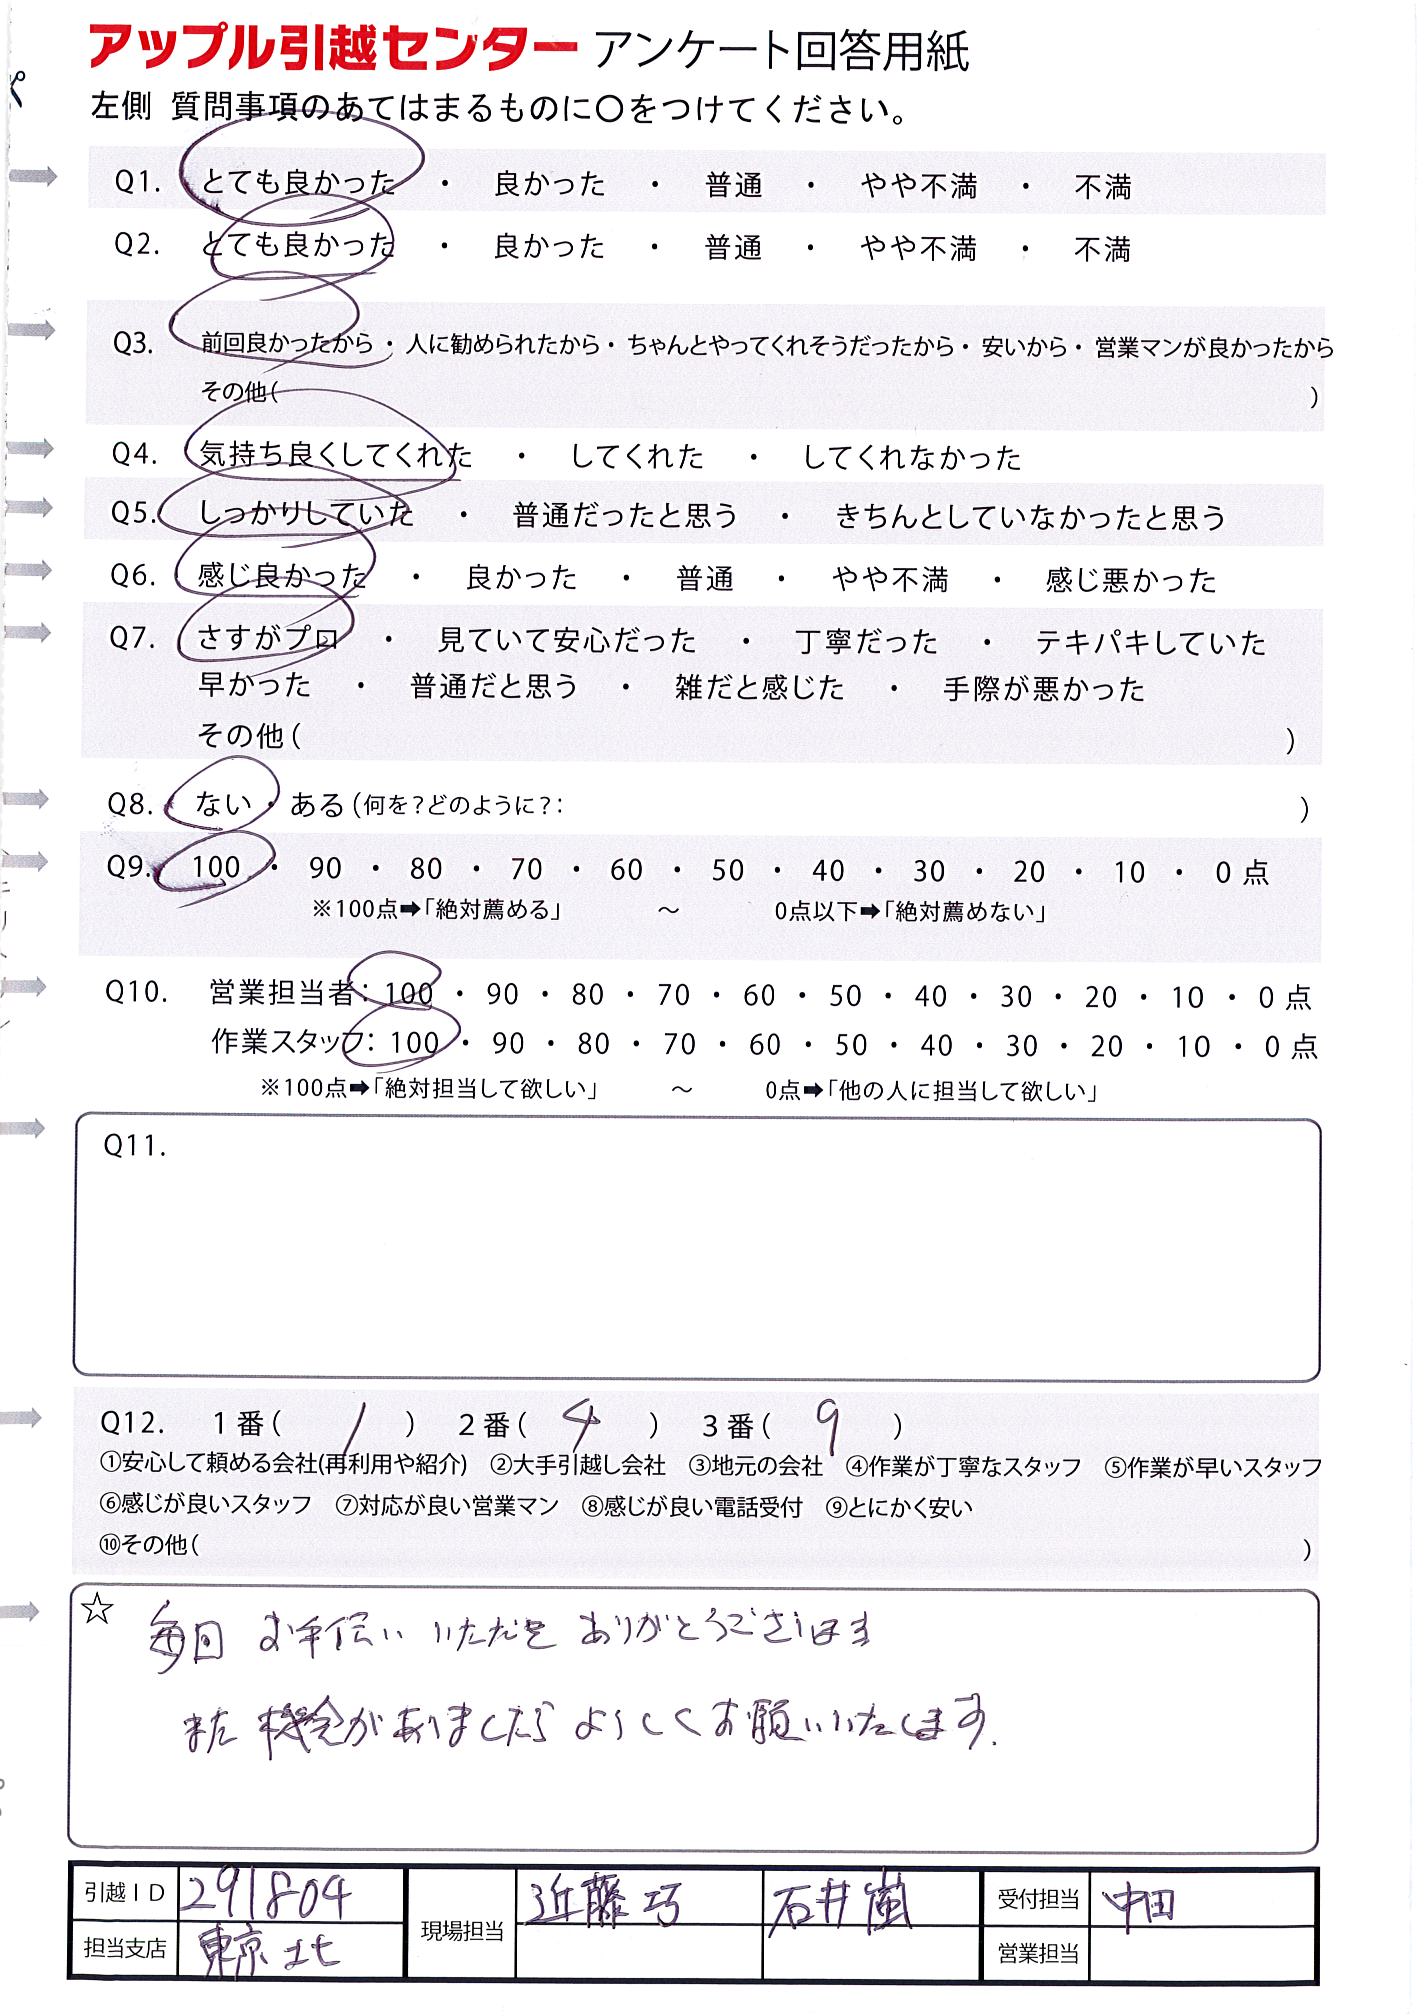 アップル引越センター アンケート回答用紙
左側 質問事項のあてはまるものに〇をつけてください。
Q1. とても良かった ・ 良かった ・ 普通 ・ やや不満 ・ 不満
Q2. とても良かった ・ 良かった ・ 普通 ・ やや不満 ・ 不満
Q3. 前回良かったから・人に勧められたから・ちゃんとやってくれそうだったから・安いから・営業マンが良かったから
その他( )
Q4. 気持ち良くしてくれた ・ してくれた ・ してくれなかった
Q5. しっかりしていた ・ 普通だったと思う ・ きちんとしていなかったと思う
Q6. 感じ良かった ・ 良かった ・ 普通 ・ やや不満 ・ 感じ悪かった
Q7. さすがプロ ・ 見ていて安心だった ・ 丁寧だった ・ テキパキしていた
早かった ・ 普通だと思う ・ 雑だと感じた ・ 手際が悪かった
その他( )
Q8. ない・ある(何を?どのように?: )
Q9. 100 ・ 90 ・ 80 ・ 70 ・ 60 ・ 50 ・ 40 ・ 30 ・ 20 ・ 10 ・ 0点
※100点➡「絶対薦める」 ～ 0点以下➡「絶対薦めない」
Q10. 営業担当者: 100 ・ 90 ・ 80 ・ 70 ・ 60 ・ 50 ・ 40 ・ 30 ・ 20 ・ 10 ・ 0点
作業スタッフ: 100 ・ 90 ・ 80 ・ 70 ・ 60 ・ 50 ・ 40 ・ 30 ・ 20 ・ 10 ・ 0点
※100点➡「絶対担当して欲しい」 ～ 0点➡「他の人に担当して欲しい」
Q11.
Q12. 1番( 1 ) 2番( 4 ) 3番( 9 )
①安心して頼める会社(再利用や紹介) ②大手引越し会社 ③地元の会社 ④作業が丁寧なスタッフ ⑤作業が早いスタッフ
⑥感じが良いスタッフ ⑦対応が良い営業マン ⑧感じが良い電話受付 ⑨とにかく安い
⑩その他( )
☆ 毎回 お手伝い いただき ありがとうございます
また 機会がありましたら よろしくお願いいたします.
引越ID 291804 現場担当 近藤巧 石井嵐 受付担当 中田
担当支店 東京北 営業担当